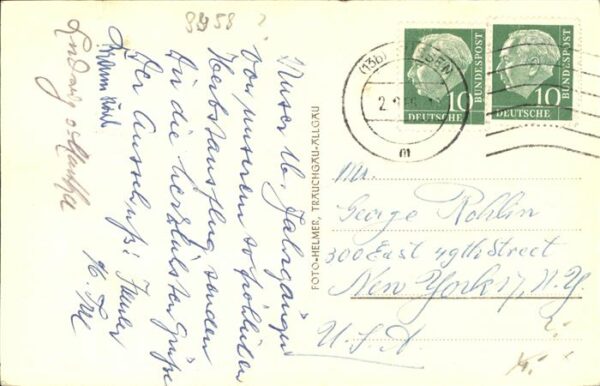 8958
?
Unser 16. Jahrgänger
von unserem so fröhlichen
Herbstausflug senden
wir die herzlichsten Grüße
Der Ausschuß:
Ludwig
FOTO-HELMER, TRAUCHGAU-ALLGÄU
(13b) FÜSSEN
m
10
DEUTSCHE
BUNDESPOST
10
DEUTSCHE
BUNDESPOST
Mr.
George Rohlin
300 East 49th Street
New York 17, N.Y.
U.S.A